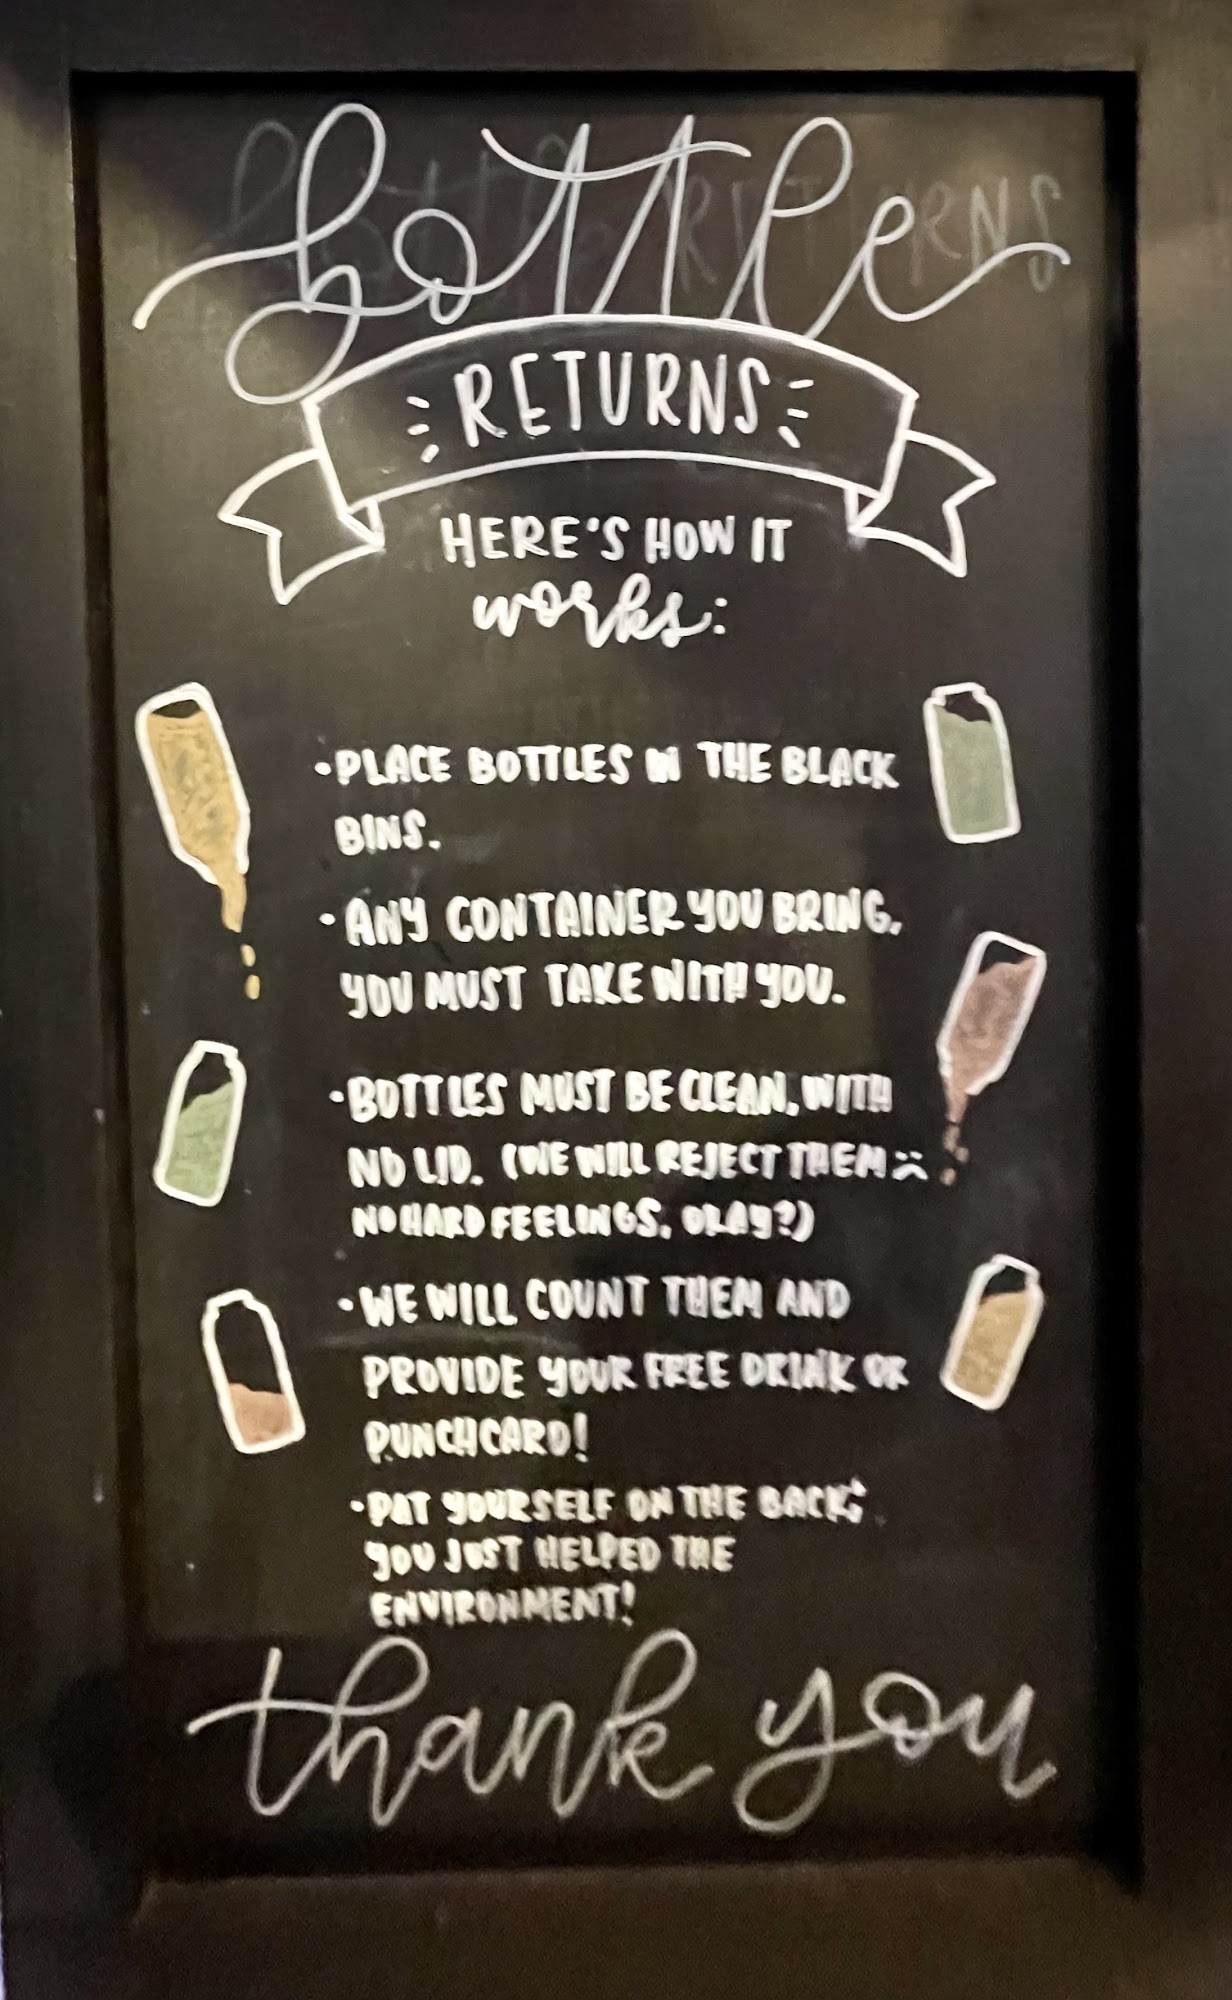 bottle
RETURNS
HERE'S HOW IT
works:
•PLACE BOTTLES IN THE BLACK
BINS.
•ANY CONTAINER YOU BRING,
YOU MUST TAKE WITH YOU.
•BOTTLES MUST BE CLEAN, WITH
NO LID. (WE WILL REJECT THEM :(
NO HARD FEELINGS, OKAY?)
•WE WILL COUNT THEM AND
PROVIDE YOUR FREE DRINK OR
PUNCHCARD!
•PAT YOURSELF ON THE BACK;
YOU JUST HELPED THE
ENVIRONMENT!
thank you